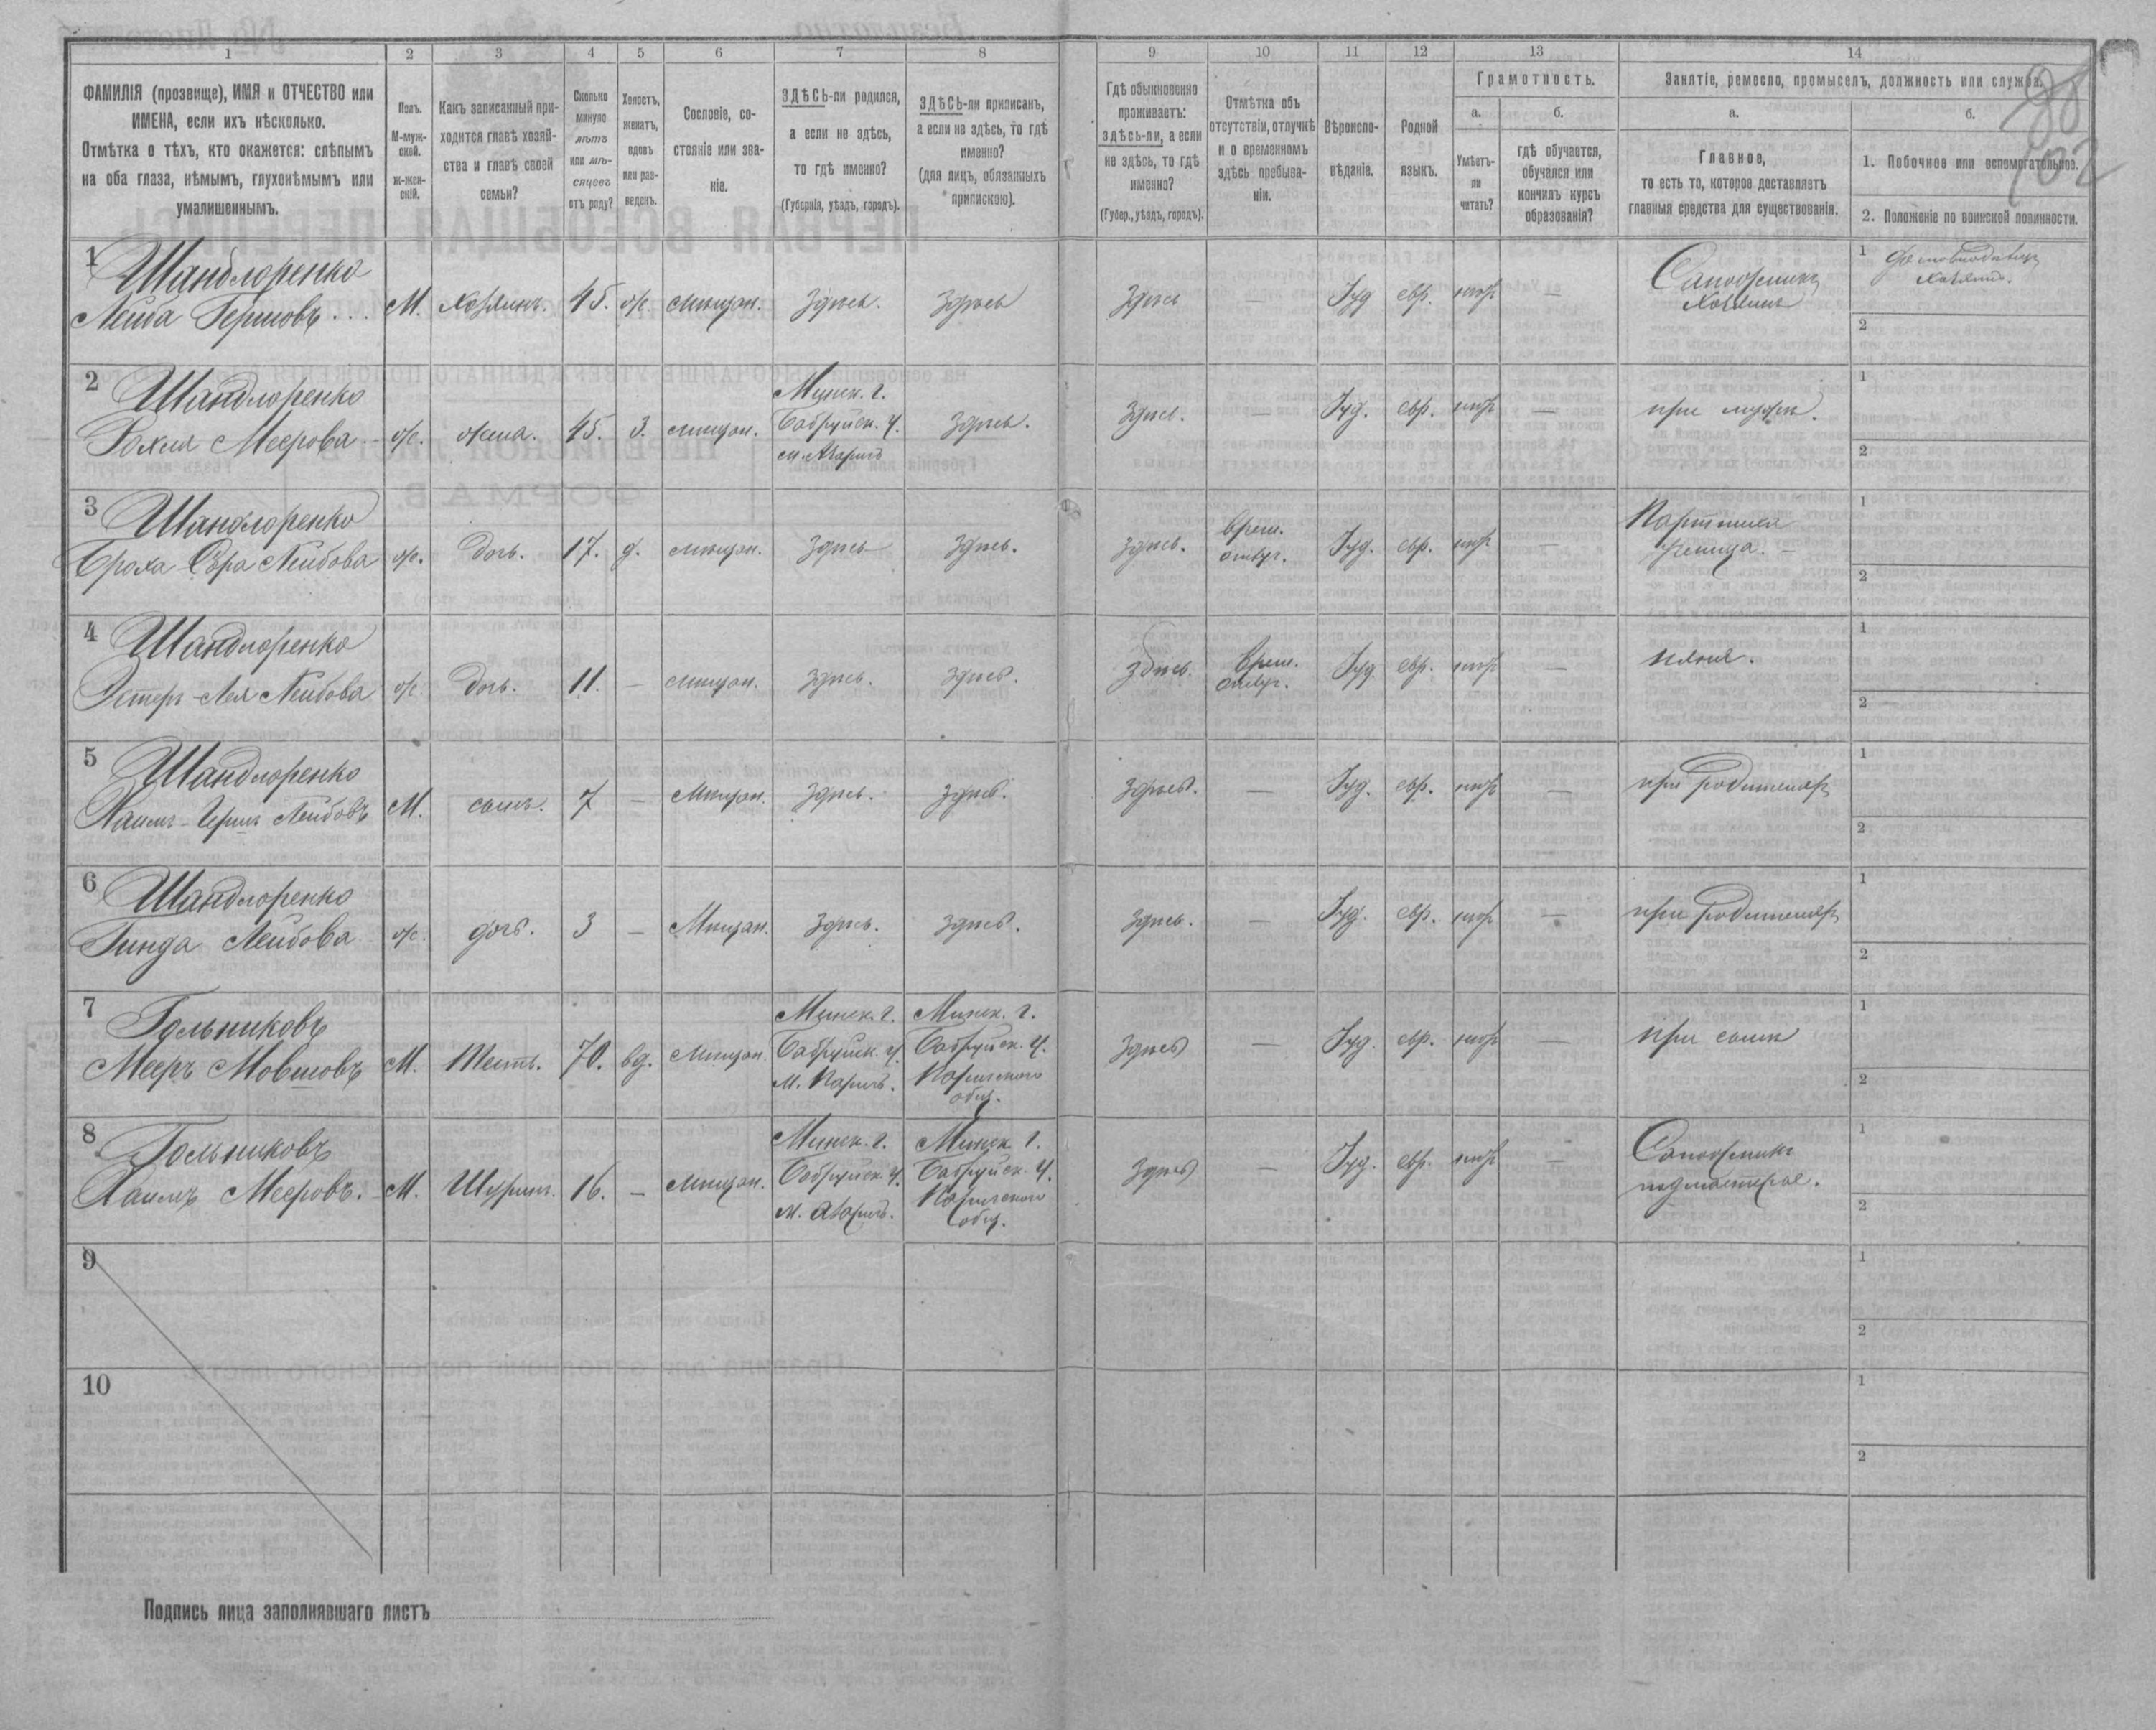 1 2 3 4 5 6 7 8 9 10 11 12 13 14
ФАМИЛІЯ (прозвище), ИМЯ и ОТЧЕСТВО или
ИМЕНА, если ихъ нѣсколько.
Отмѣтка о тѣхъ, кто окажется: слѣпымъ
на оба глаза, нѣмымъ, глухонѣмымъ или
умалишеннымъ.
Полъ.
М-муж-
ской.
Ж-жен-
скій.
Какъ записанный при-
ходится главѣ хозяй-
ства и главѣ своей
семьи?
Сколько
минуло
лѣтъ
или мѣ-
сяцевъ
отъ роду?
Холостъ,
женатъ,
вдовъ
или раз-
веденъ.
Сословіе, со-
стояніе или зва-
ніе.
ЗДѢСЬ-ли родился,
а если не здѣсь,
то гдѣ именно?
(Губернія, уѣздъ, городъ).
ЗДѢСЬ-ли приписанъ,
а если не здѣсь, то гдѣ
именно?
(для лицъ, обязанныхъ
припискою).
Гдѣ обыкновенно
проживаетъ:
здѣсь-ли, а если
не здѣсь, то гдѣ
именно?
(Губер., уѣздъ, городъ).
Отмѣтка объ
отсутствіи, отлучкѣ
и о временномъ
здѣсь пребыва-
ніи.
Вѣроиспо-
вѣданіе.
Родной
языкъ.
Грамотность.
а. б.
Умѣетъ-
ли
читать?
гдѣ обучается,
обучался или
кончилъ курсъ
образованія?
Занятіе, ремесло, промыселъ, должность или служба.
а. б.
Главное,
то есть то, которое доставляетъ
главныя средства для существованія.
1. Побочное или вспомогательное.
2. Положеніе по воинской повинности.
102
1 Шандлоренко
Лейба Гершовъ М. хозяинъ. 45. ж. мѣщан. здѣсь. здѣсь здѣсь — Іуд евр. негр — Сапожникъ
хозяинъ
1 домовладѣлецъ
хозяинъ.
2
2 Шандлоренко
Рохля Меерова ж. жена. 45. з. мѣщан.
Минск. г.
Бобруйск. у.
м.
здѣсь. здѣсь. — Іуд. евр. негр — при мужѣ.
1
2
3 Шандлоренко
Броха-Сѣра Лейбова ж. дочь. 17. д. мѣщан. здѣсь здѣсь. здѣсь.
врем.
отлуч.
Іуд. евр. негр —
Портниха
ученица.
1
2
4 Шандлоренко
Эстеръ-Лея Лейбова ж. дочь. 11. — мѣщан. здѣсь. здѣсь. здѣсь.
врем.
отлуч.
Іуд. евр. негр — няня.
1
2
5 Шандлоренко
Хаимъ-Гершъ Лейбовъ М. сынъ. 7 — мѣщан. здѣсь. здѣсь. здѣсь. — Іуд. евр. негр — при родителяхъ
1
2
6 Шандлоренко
Гинда Лейбова ж. дочь. 3 — Мѣщан. здѣсь. здѣсь. здѣсь. — Іуд. евр. негр — при родителяхъ
1
2
7 Гольниковъ
Мееръ Мовшовъ М. Тесть. 70. вд. мѣщан.
Минск. г.
Бобруйск. у.
м. Паричъ.
Минск. г.
Бобруйск. у.
Паричского
общ.
здѣсь — Іуд. евр. негр — при сынѣ
1
2
8 Гольниковъ
Хаимъ Мееровъ. М. Шуринъ. 16. — мѣщан.
Минск. г.
Бобруйск. у.
м. Паричъ.
Минск. г.
Бобруйск. у.
Паричского
общ.
здѣсь — Іуд. евр. негр —
Сапожникъ
подмастерье.
1
2
9
1
2
10
1
2
Подпись лица заполнявшаго листъ